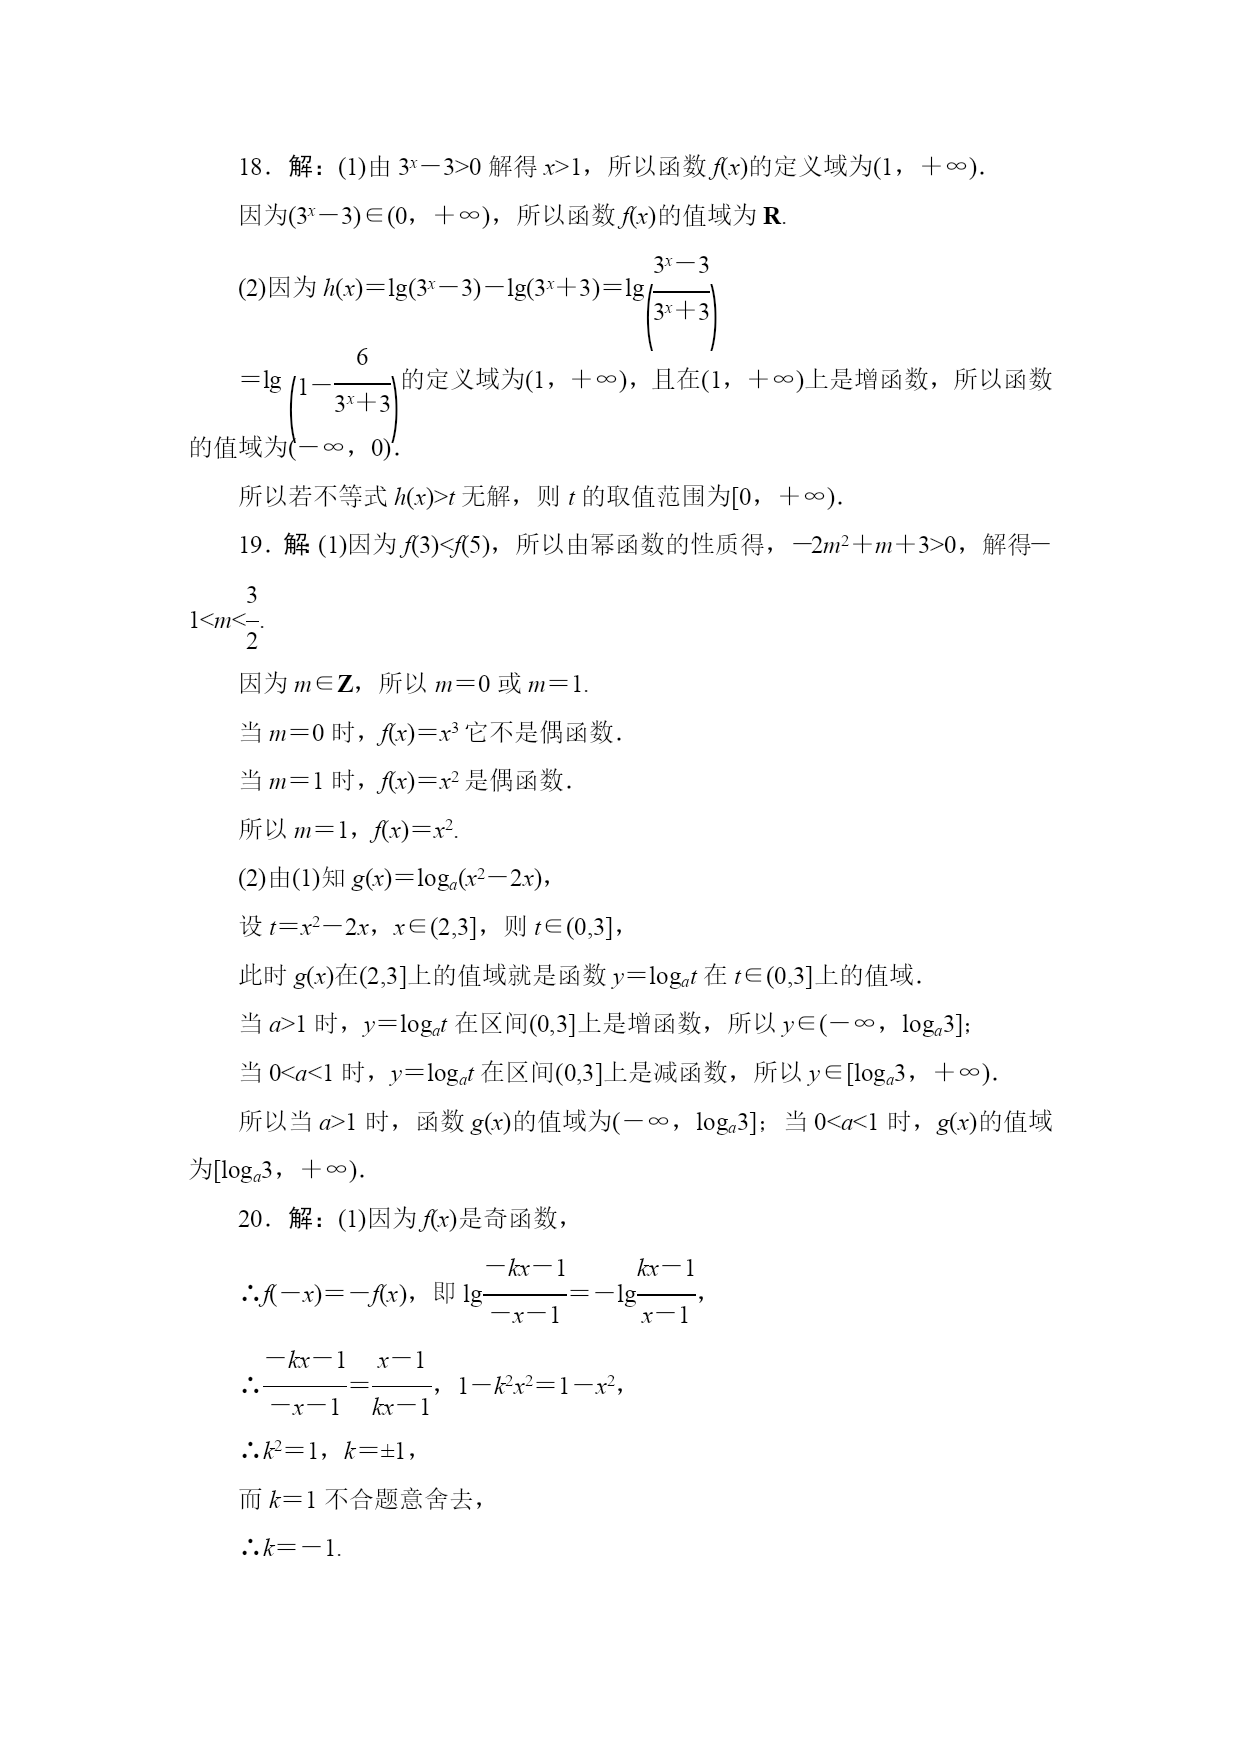 18．解：(1)由 3ˣ－3>0 解得 x>1，所以函数 f(x)的定义域为(1，＋∞)．
因为(3ˣ－3)∈(0，＋∞)，所以函数 f(x)的值域为 R.
(2)因为 h(x)＝lg(3ˣ－3)－lg(3ˣ＋3)＝lg((3ˣ－3)/(3ˣ＋3))
＝lg(1－6/(3ˣ＋3))的定义域为(1，＋∞)，且在(1，＋∞)上是增函数，所以函数
的值域为(－∞，0)．
所以若不等式 h(x)>t 无解，则 t 的取值范围为[0，＋∞)．
19．解：(1)因为 f(3)<f(5)，所以由幂函数的性质得，－2m²＋m＋3>0，解得－
1<m<3/2.
因为 m∈Z，所以 m＝0 或 m＝1.
当 m＝0 时，f(x)＝x³ 它不是偶函数．
当 m＝1 时，f(x)＝x² 是偶函数．
所以 m＝1，f(x)＝x².
(2)由(1)知 g(x)＝logₐ(x²－2x)，
设 t＝x²－2x，x∈(2,3]，则 t∈(0,3]，
此时 g(x)在(2,3]上的值域就是函数 y＝logₐt 在 t∈(0,3]上的值域．
当 a>1 时，y＝logₐt 在区间(0,3]上是增函数，所以 y∈(－∞，logₐ3]；
当 0<a<1 时，y＝logₐt 在区间(0,3]上是减函数，所以 y∈[logₐ3，＋∞)．
所以当 a>1 时，函数 g(x)的值域为(－∞，logₐ3]；当 0<a<1 时，g(x)的值域
为[logₐ3，＋∞)．
20．解：(1)因为 f(x)是奇函数，
∴f(－x)＝－f(x)，即 lg(－kx－1)/(－x－1)＝－lg(kx－1)/(x－1)，
∴(－kx－1)/(－x－1)＝(x－1)/(kx－1)，1－k²x²＝1－x²，
∴k²＝1，k＝±1，
而 k＝1 不合题意舍去，
∴k＝－1.